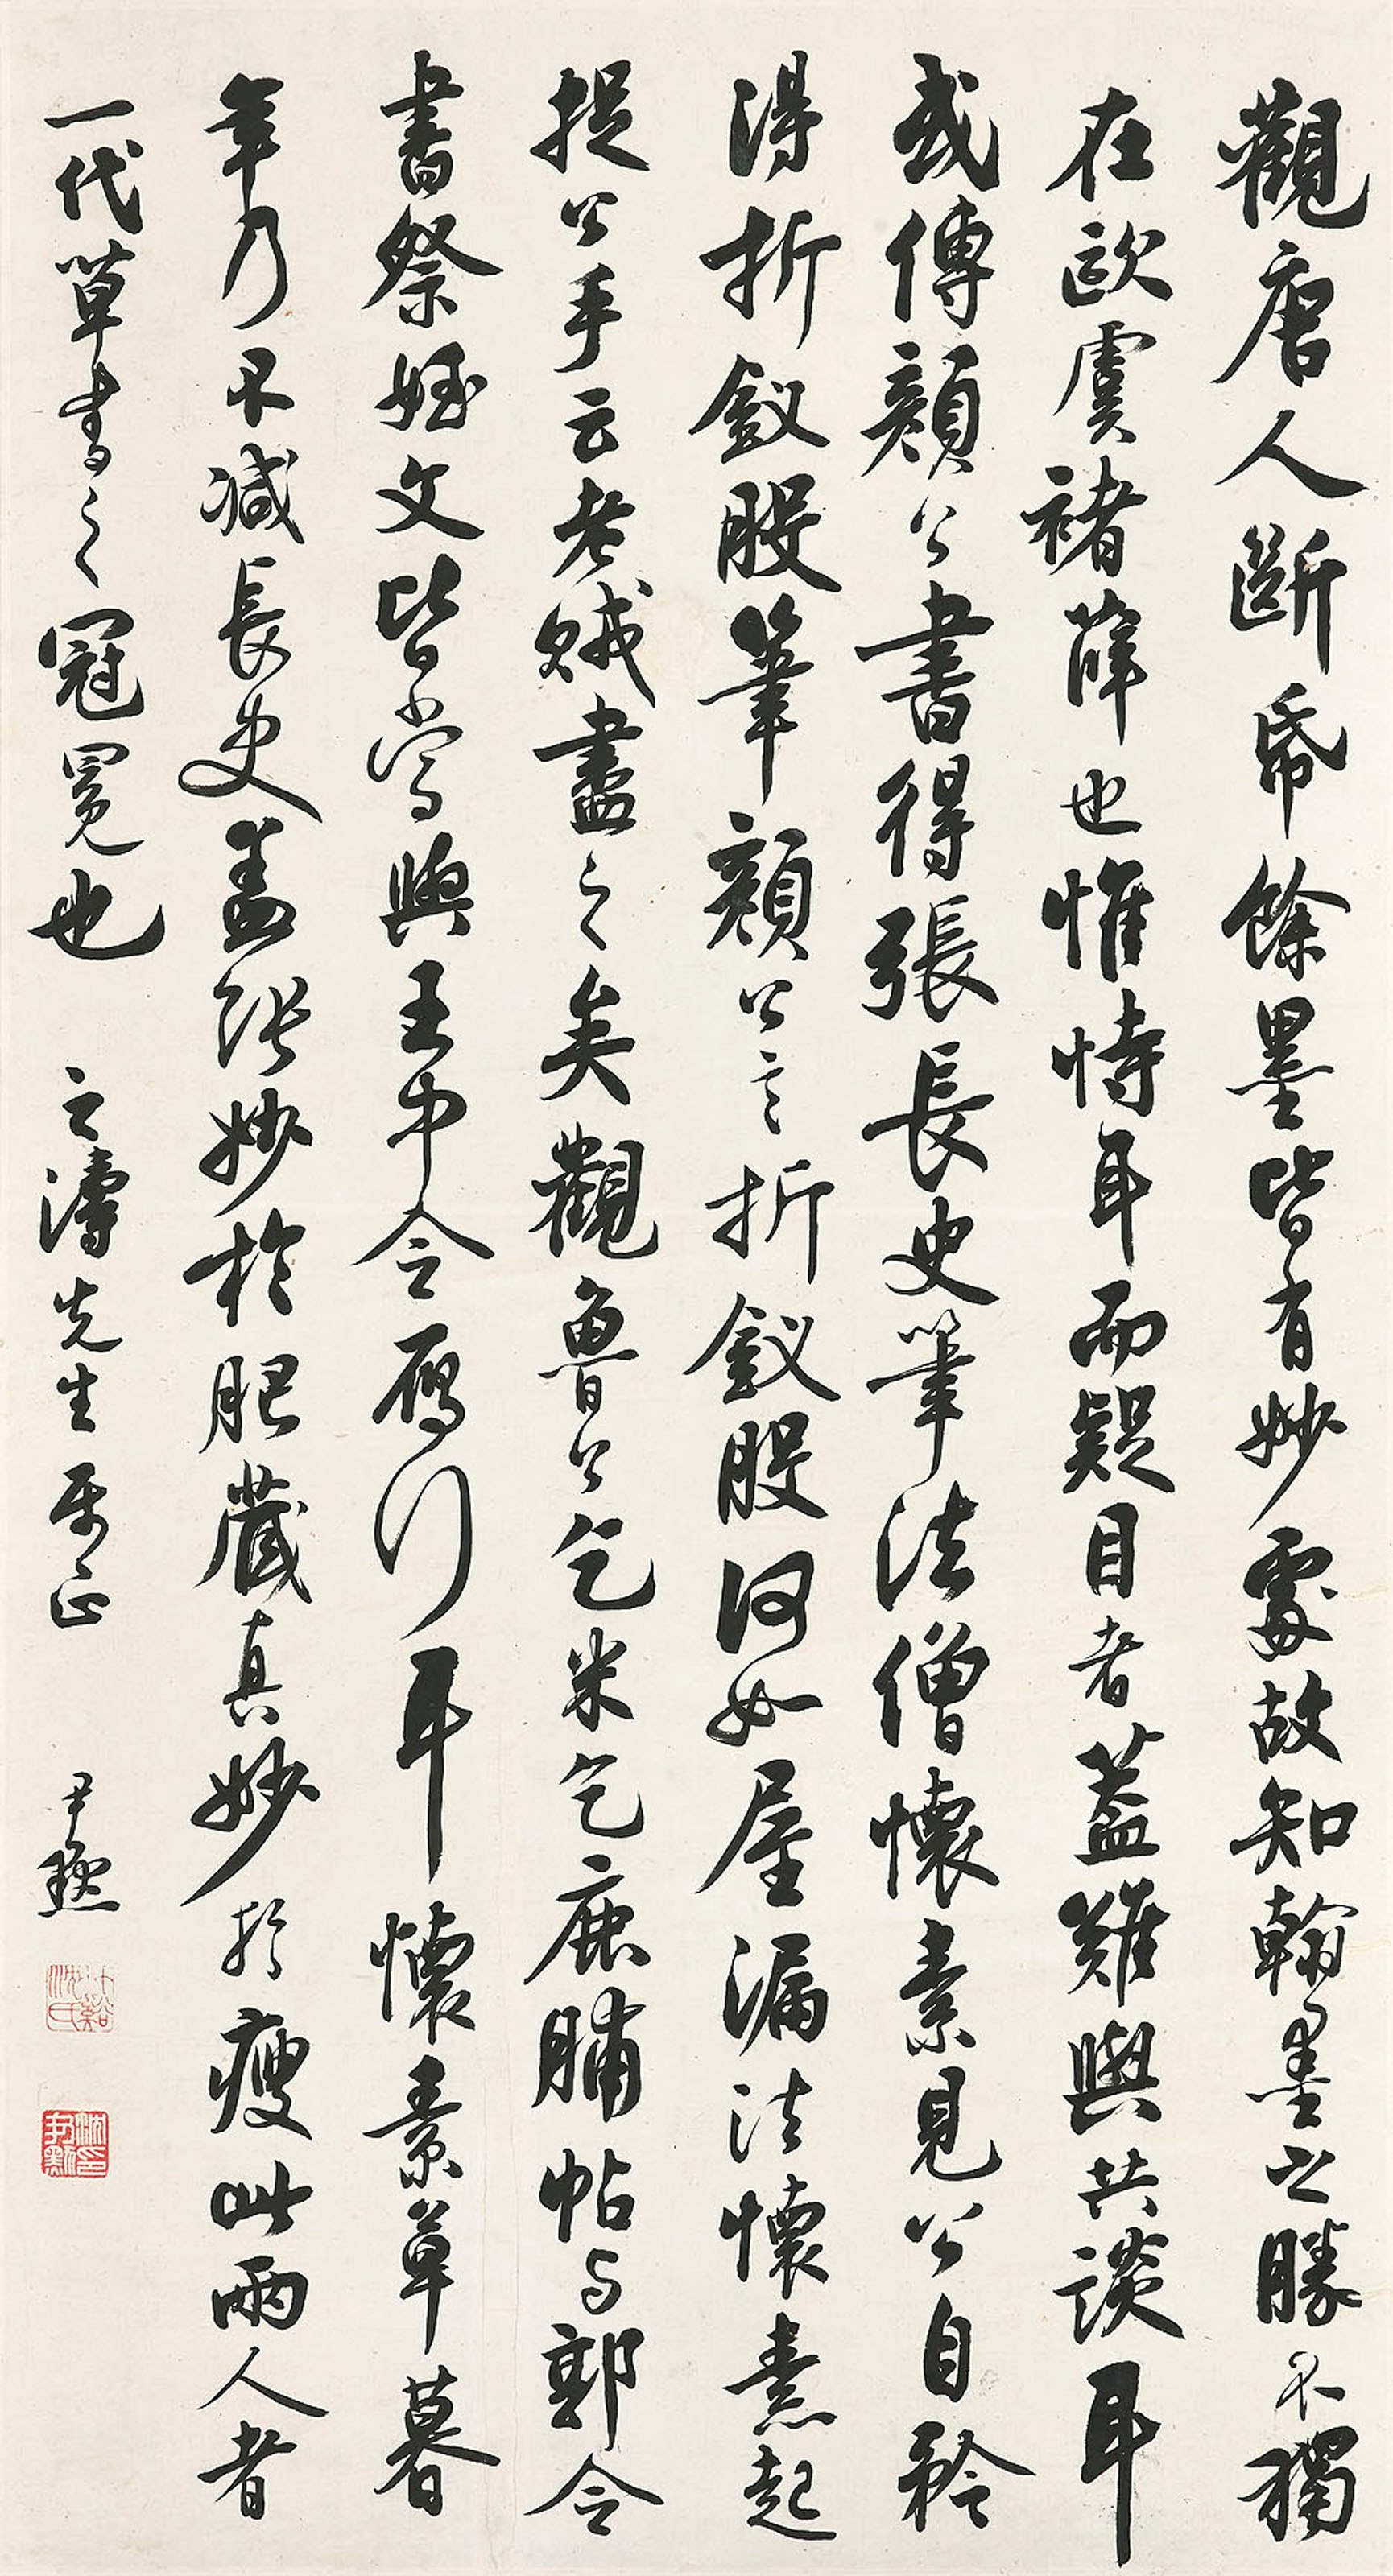 觀唐人斷帋餘墨皆有妙處故知翰墨之勝不獨
在歐虞褚薛也惟恃耳而疑目者蓋難與共談耳
或傳顏公書得張長史筆法僧懷素見公自矜
得折釵股筆顏公言折釵股何如屋漏法懷素起
捉公手云老賊盡之矣觀魯公乞米乞鹿脯帖与郭令
書祭姪文皆當與王中令雁行耳懷素草暮
年乃不減長史蓋張妙於肥藏真妙於瘦此兩人者
一代草書之冠冕也 之濤先生 正 尹默
沈尹默印